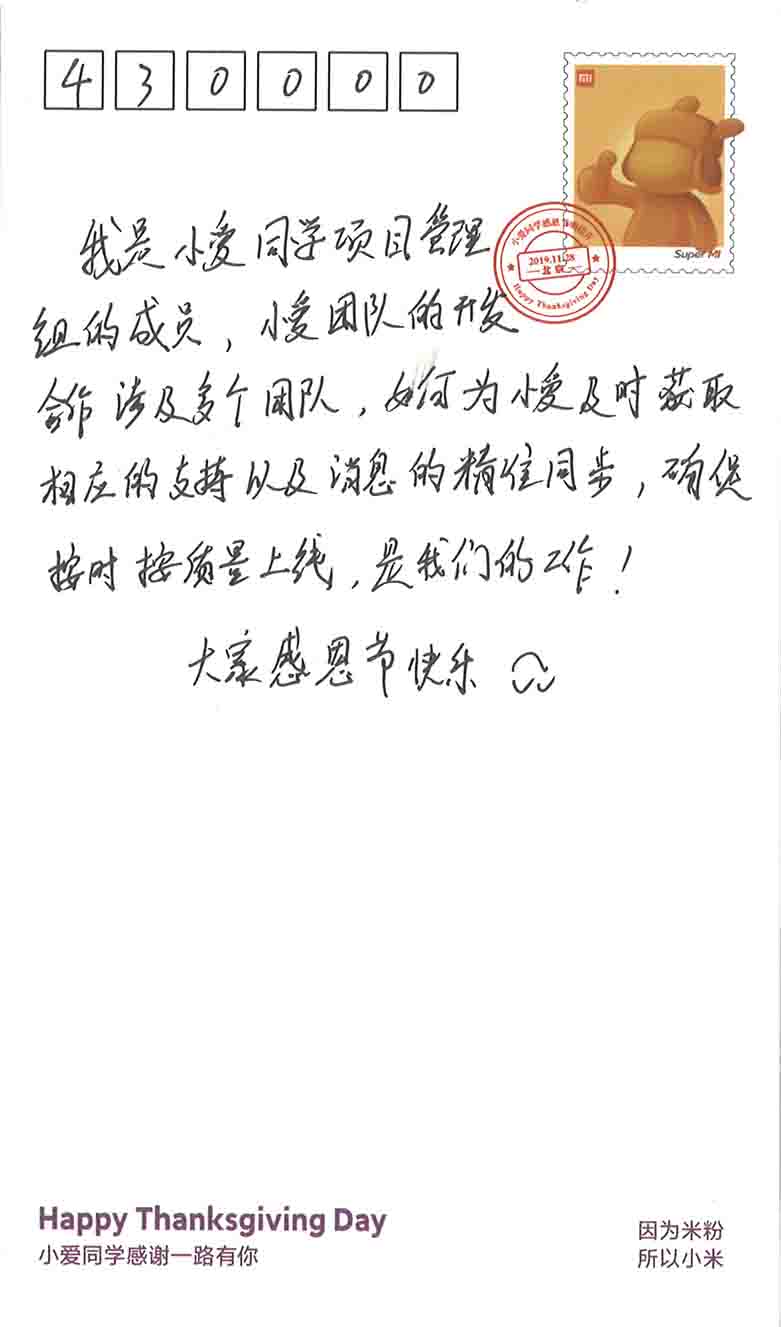 430000
MI
Super MI
小爱同学感恩节明信片
2019.11.28
北京
Happy Thanksgiving Day
我是小爱同学项目管理
组的成员，小爱团队的开发
合作涉及多个团队，如何为小爱及时获取
相应的支持以及消息的精准同步，确保
按时按质量上线，是我们的工作！
大家感恩节快乐
Happy Thanksgiving Day
小爱同学感谢一路有你
因为米粉
所以小米